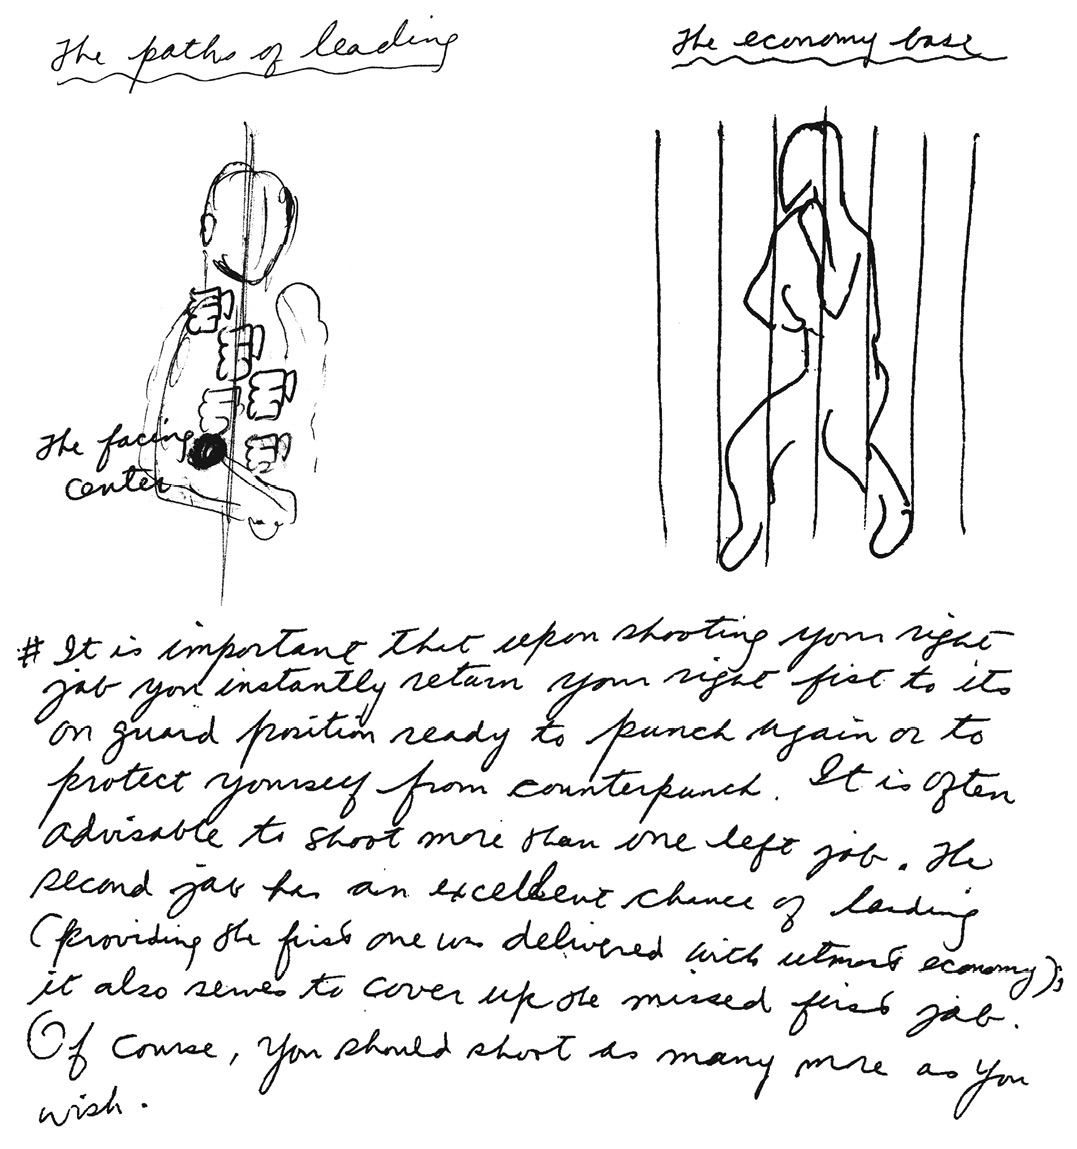 The paths of leading
The economy base
The facing
center
# It is important that upon shooting your right
jab you instantly return your right fist to its
on guard position ready to punch again or to
protect yourself from counterpunch. It is often
advisable to shoot more than one left jab. The
second jab has an excellent chance of landing
(providing the first one was delivered with utmost economy);
it also serves to cover up the missed first jab.
Of course, you should shoot as many more as you
wish.